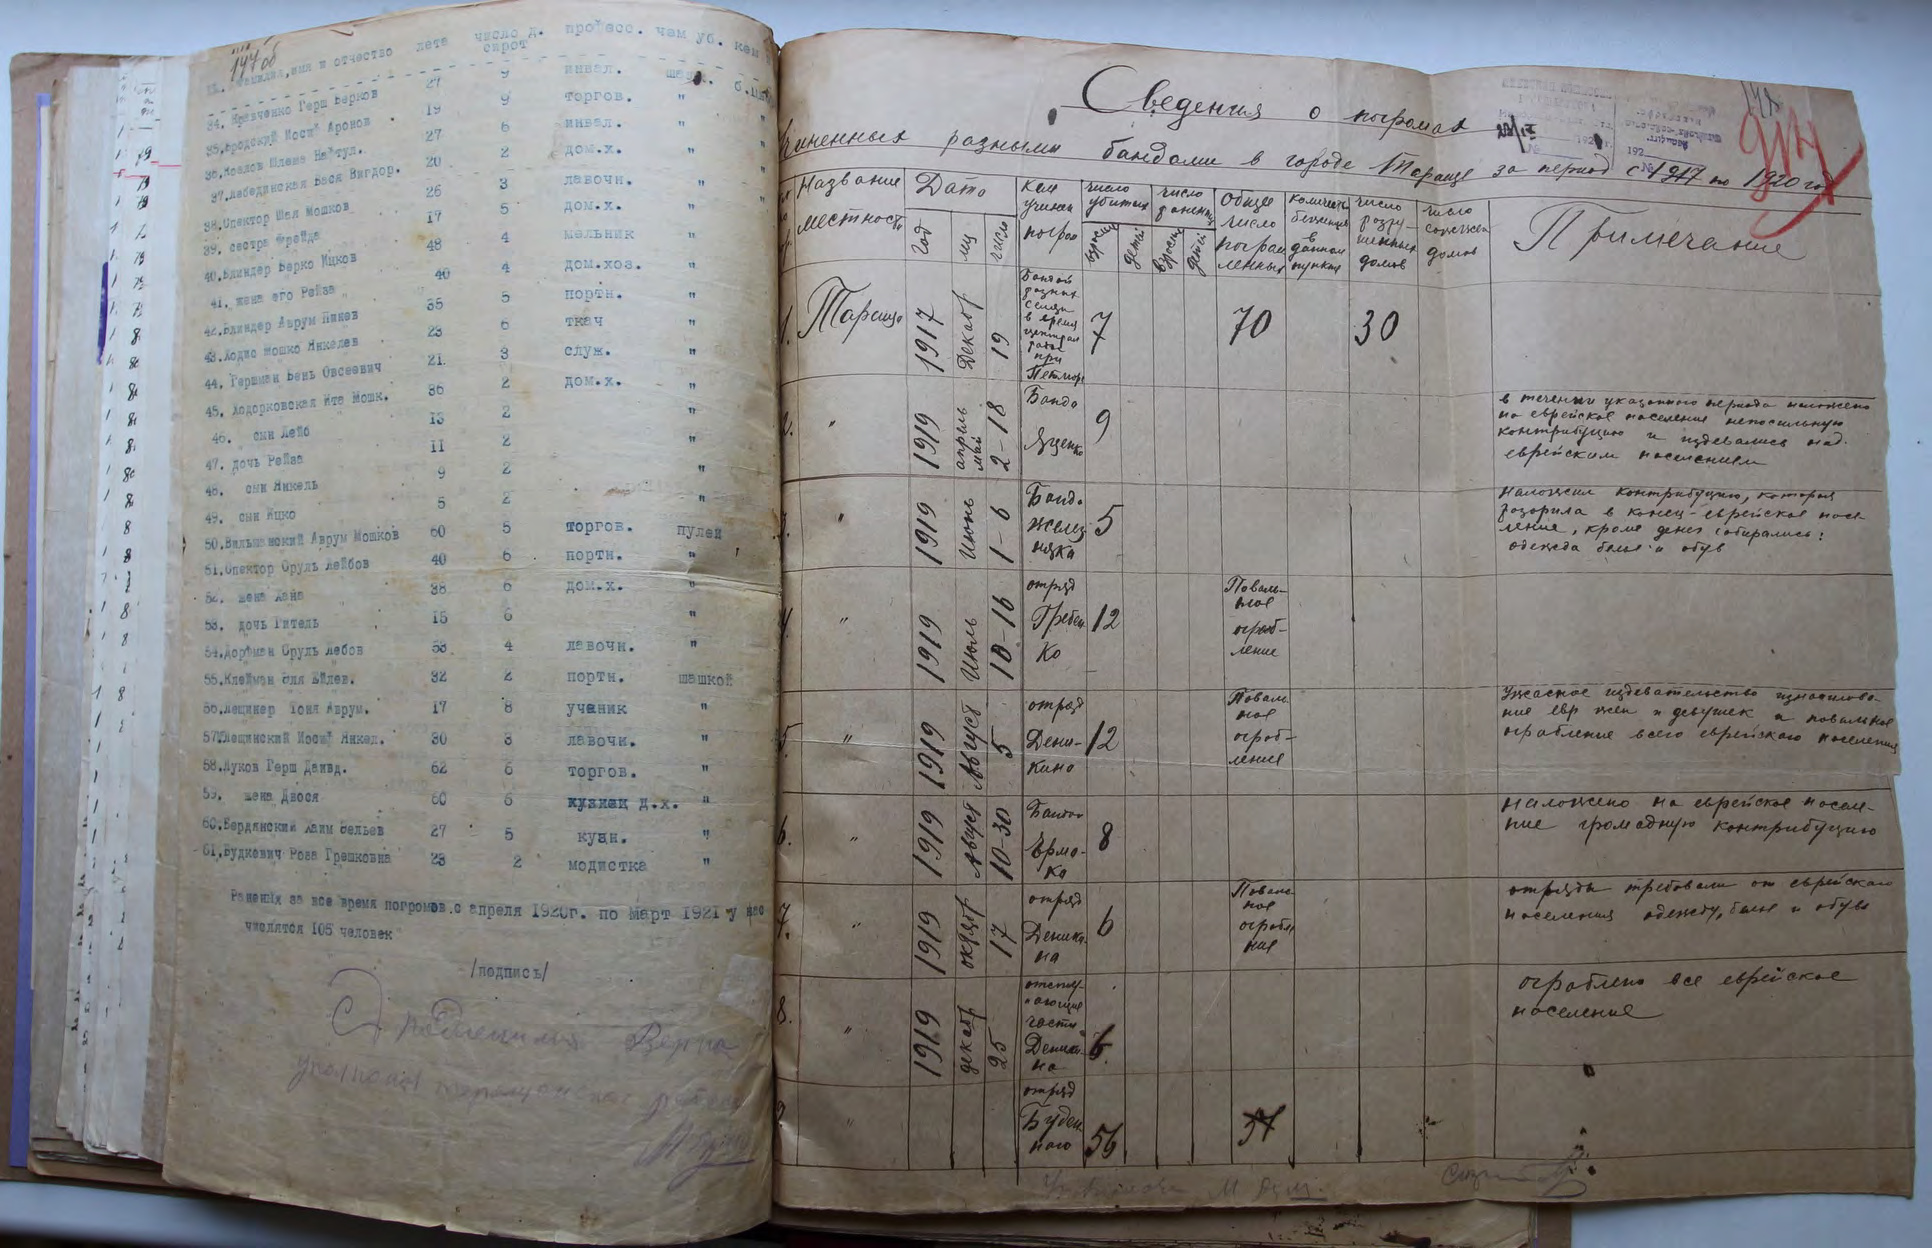 147 об
фамилия, имя и отчество лета число д. сирот професс. чем уб. кем
34. Кравченко Герш Берков 27 9 инвал.
35. Бродский Иосиф Аронов 19 9 торгов. "
27 6 инвал. "
37. Лебединская Бася Вигдор. 20 2 дом.х. "
38. Спектор Шая Мошков 26 3 лавочн. "
39. сестра Фрейда 17 5 дом.х. "
40. Блиндер Берко Ицков 48 4 мельник "
41. жена его Рейза 40 4 дом.хоз. "
42. Блиндер Аврум Янкев 35 5 портн. "
43. Ходис Мошко Янкелев 23 6 ткач "
44. Гершман Бень Овсеевич 21 3 служ. "
45. Ходорковская Ита Мошк. 36 2 дом.х. "
46. сын Лейб 13 2 "
47. дочь Рейза 11 2 "
48. сын Янкель 9 2 "
49. сын Ицко 5 2 "
50. Вильшанский Аврум Мошков 60 5 торгов. пулей
51. Спектор Сруль Лейбов 40 6 портн. "
52. жена Хана 38 6 дом.х. "
53. дочь Гитель 15 6 "
54. Дорфман Сруль Лебов 53 4 лавочн. "
55. Клейман Эля Ейлев. 32 2 портн. шашкой
56. Лещинер Тоня Аврум. 17 8 ученик "
57. Лещинский Иосиф Янкел. 30 3 лавочн. "
58. Луков Герш Давид. 62 6 торгов. "
59. жена Двося 60 6 д.х. "
60. Бердянский Хаим Зельев 27 5 кузн. "
61. Будкевич Роза Грешковна 23 2 модистка "
Ранения за все время погромов с апреля 1920г. по Март 1921 у нас
числятся 105 человек
/подпись/
С подлинным Верно
Сведения о погромах
учиненных разными бандами в городе Тараще за период с 1917 по 1920 год
Название местности Дата год мц число Кем учинен погром число убитых взросл детей число раненных взросл детей Общее число пограбленных количеств беженцев в данном пункте число разрушенных домов число сожжен домов Примечание
1. Тараща 1917 Декабр 19 Бандой разных селян в время централ рады при Петлюре 7 70 30
2. " 1919 апрель май 2-18 Банда Яценко 9 в течении указанного периода наложено
на еврейское население непосильную
контрибуцию и издевались над
еврейским населением
3. " 1919 Июнь 1-6 Банда Железняка 5 Наложил контрибуцию, которая
разорила в конец еврейское насе-
ление, кроме денег собирались:
одежда белье и обув
4. " 1919 Июль 10-16 отряд Гребенко 12 Повальное ограбление
5. " 1919 Август 5 отряд Деникина 12 Повальное ограбление Ужасное издевательство изнасилова-
ние евр жен и девушек и повальное
ограбление всего еврейского населения
6. " 1919 Август 10-30 Банда Ермо-ка 8 Наложено на еврейское населе-
ние громадную контрибуцию
7. " 1919 октябр 17 отряд Деникина 6 Повальное ограбление отряды требовали от еврейского
населения одежду, белье и обувь
8. " 1919 декабр 25 отступающие части Деникина 6 ограблено все еврейское
население
9. " отряд Буденного 56